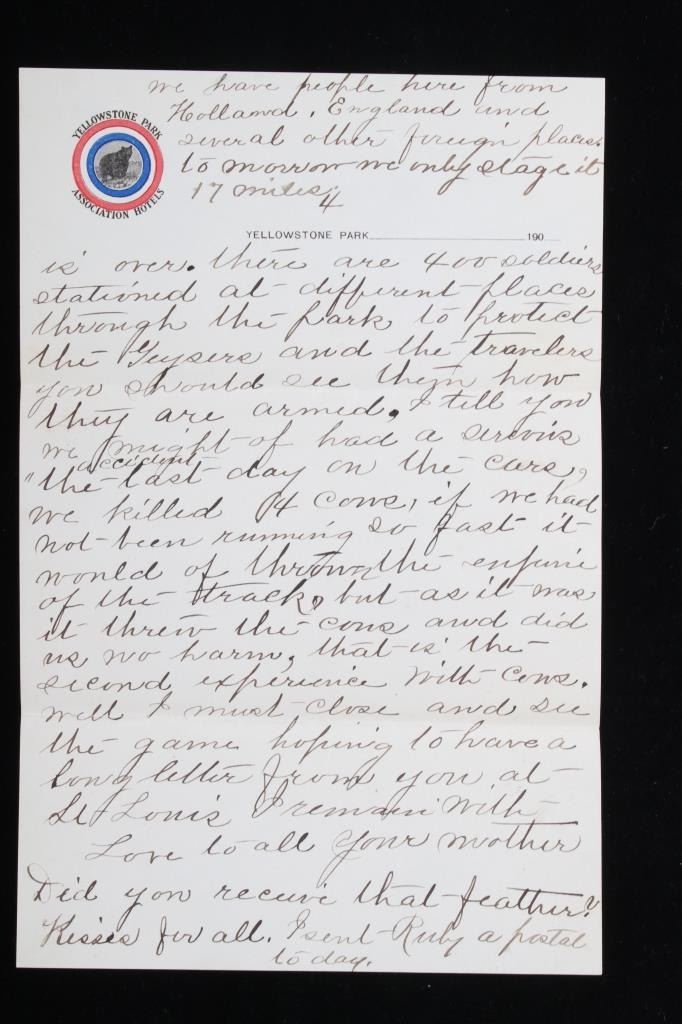 we have people here from
Holland, England and
several other foreign places.
to morrow we only stage it
17 miles
4
YELLOWSTONE PARK
ASSOCIATION HOTELS
YELLOWSTONE PARK 190
is over. there are 400 soldiers
stationed at different places
through the park to protect
the Geysers and the travelers
you should see them how
they are armed. I tell you
we might of had a serovis
accident
"the last day on the cars,
we killed 4 cows, if we had
not been running so fast it
would of thrown the engine
of the track, but as it was
it threw the cows and did
us no harm, that is the
second experience with cows.
well I must close and see
the game hoping to have a
long letter from you at
St Louis I remain with
Love to all your mother
Did you receive that feather?
Kisses for all. I sent Ruby a postal
to day.